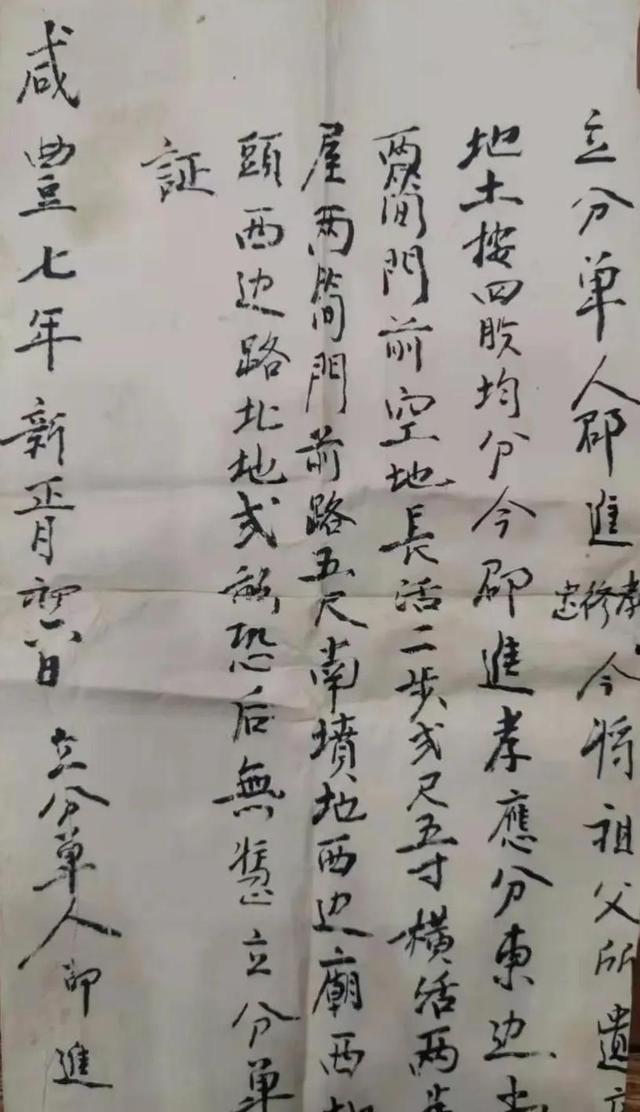 立分单人郡進孝修忠今将祖父所遺
地土按四股均分今郡進孝應分東边
两间門前空地長活二步弍尺五寸横活两
屋两简門前路五尺南墳地西边廟西
頭西边路北地弍畝恐后無凴立分单
証
咸豐七年新正月初六日 立分单人郡進